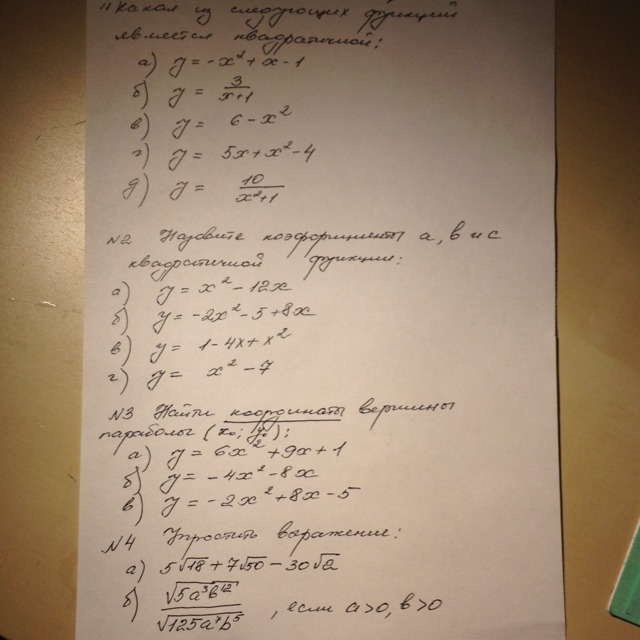 Какая из следующих функций
является квадратичной:
а) y = -x² + x - 1
б) y = 3/(x+1)
в) y = 6 - x²
г) y = 5x + x² - 4
д) y = 10/(x²+1)
№2 Назовите коэффициенты а, в и с
квадратичной функции:
а) y = x² - 12x
б) y = -2x² - 5 + 8x
в) y = 1 - 4x + x²
г) y = x² - 7
№3 Найти координаты вершины
параболы (x₀; y₀):
а) y = 6x² + 9x + 1
б) y = -4x² - 8x
в) y = -2x² + 8x - 5
№4 Упростить выражение:
а) 5√18 + 7√50 - 30√2
б) √(5a³b¹²)/√(125a⁷b⁵), если a>0, b>0